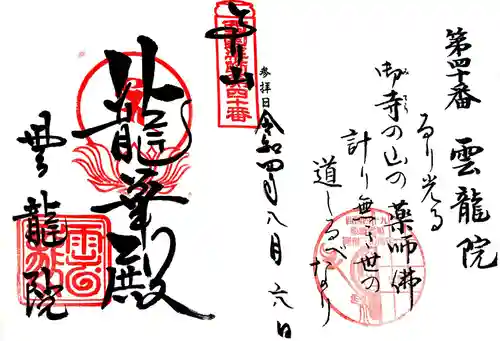 第四十番 雲龍院
るり光る
御寺の山の薬師佛
計り無き世の
道しるべなり
参拝日
令和四年八月六日
龍華殿
雲龍院